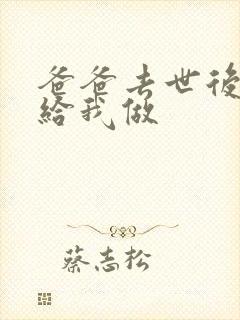 爸爸去世後
給我做
蔡志松